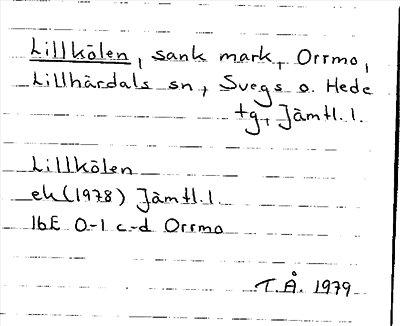 Lillkölen, sank mark, Orrmo,
Lillhärdals sn, Svegs o. Hede
tg, Jämtl. l.
Lillkölen
ek (1978) Jämtl. l.
16E 0-1 c-d Orrmo
T.Å. 1979